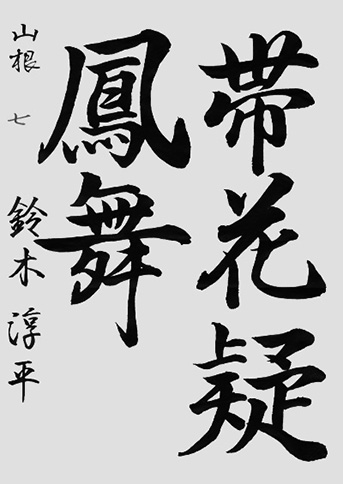 帯花疑
鳳舞
山根 七 鈴木淳平